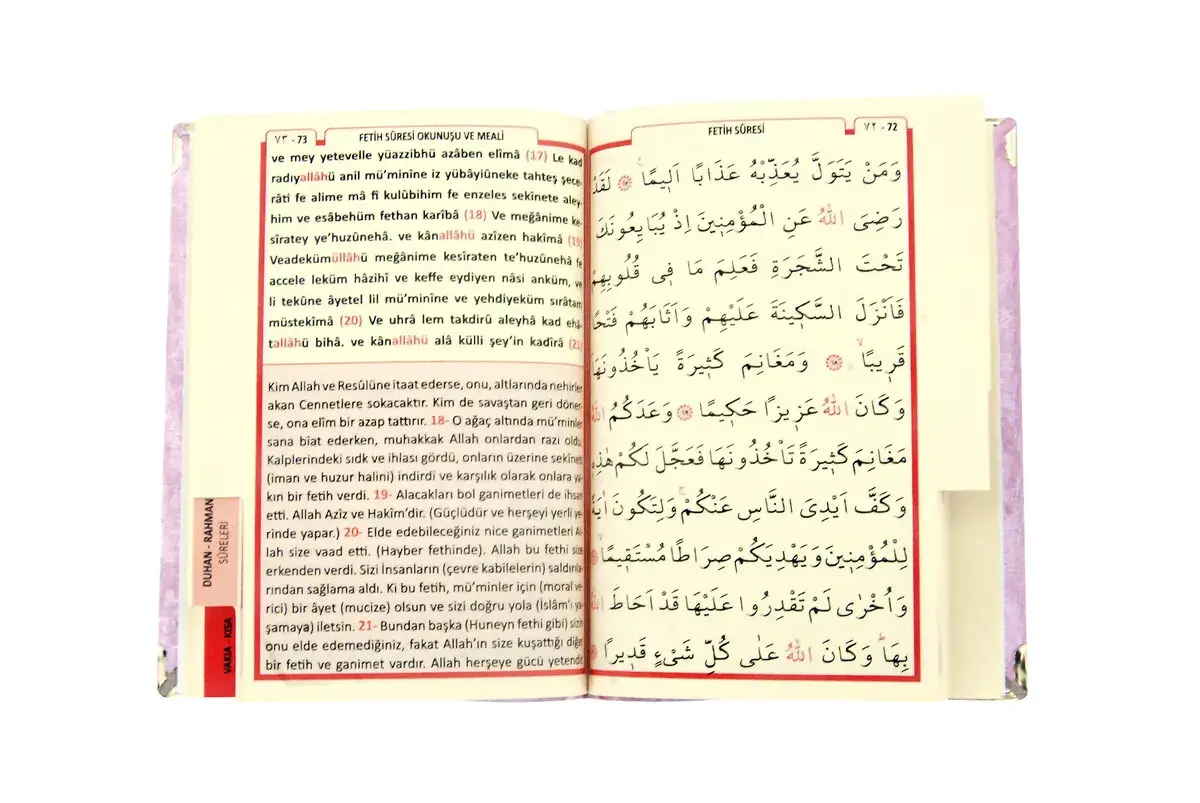 FETİH SÛRESİ
٧٢ - 72
وَمَنْ يَتَوَلَّ يُعَذِّبْهُ عَذَابًا اَلٖيمًا ۚ ﴿١٧﴾ لَقَدْ
رَضِىَ اللّٰهُ عَنِ الْمُؤْمِنٖينَ اِذْ يُبَايِعُونَكَ
تَحْتَ الشَّجَرَةِ فَعَلِمَ مَا فٖى قُلُوبِهِمْ
فَاَنْزَلَ السَّكٖينَةَ عَلَيْهِمْ وَاَثَابَهُمْ فَتْحًا
قَرٖيبًا ۙ ﴿١٨﴾ وَمَغَانِمَ كَثٖيرَةً يَاْخُذُونَهَا
وَكَانَ اللّٰهُ عَزٖيزًا حَكٖيمًا ﴿١٩﴾ وَعَدَكُمُ اللّٰهُ
مَغَانِمَ كَثٖيرَةً تَاْخُذُونَهَا فَعَجَّلَ لَكُمْ هٰذِهٖ
وَكَفَّ اَيْدِىَ النَّاسِ عَنْكُمْ ۚ وَلِتَكُونَ اٰيَةً
لِلْمُؤْمِنٖينَ وَيَهْدِيَكُمْ صِرَاطًا مُسْتَقٖيمًا ۙ
وَاُخْرٰى لَمْ تَقْدِرُوا عَلَيْهَا قَدْ اَحَاطَ اللّٰهُ
بِهَا ۜ وَكَانَ اللّٰهُ عَلٰى كُلِّ شَىْءٍ قَدٖيرًا
٧٣ - 73
FETİH SÛRESİ OKUNUŞU VE MEALİ
ve mey yetevelle yüazzibhü azâben elîmâ (17) Le kad
radıyallâhü anil mü’minîne iz yübâyiûneke tahteş şece-
râti fe alime mâ fî kulûbihim fe enzeles sekînete aley-
him ve esâbehüm fethan karîbâ (18) Ve meğânime ke-
sîratey ye’huzûnehâ. ve kânallâhü azîzen hakîmâ (19)
Veadekümüllâhü meğânime kesîraten te’huzûnehâ fe
accele leküm hâzihî ve keffe eydiyen nâsi anküm, ve
li tekûne âyetel lil mü’minîne ve yehdiyeküm sırâtam
müstekîmâ (20) Ve uhrâ lem takdirû aleyhâ kad ehâ-
tallâhü bihâ. ve kânallâhü alâ külli şey’in kadîrâ (21)
Kim Allah ve Resûlüne itaat ederse, onu, altlarında nehirler
akan Cennetlere sokacaktır. Kim de savaştan geri döner-
se, ona elîm bir azap tattırır. 18- O ağaç altında mü’minler
sana bîat ederken, muhakkak Allah onlardan razı oldu.
Kalplerindeki sıdk ve ihlası gördü, onların üzerine sekînet
(iman ve huzur halini) indirdi ve karşılık olarak onlara ya-
kın bir fetih verdi. 19- Alacakları bol ganimetleri de ihsan
etti. Allah Azîz ve Hakîm’dir. (Güçlüdür ve herşeyi yerli ye-
rinde yapar.) 20- Elde edebileceğiniz nice ganimetleri Al-
lah size vaad etti. (Hayber fethinde). Allah bu fethi size
erkenden verdi. Sizi İnsanların (çevre kabilelerin) saldırıla-
rından sağlama aldı. Ki bu fetih, mü’minler için (moral ve-
rici) bir âyet (mucize) olsun ve sizi doğru yola (İslâm’ı ya-
şamaya) iletsin. 21- Bundan başka (Huneyn fethi gibi) sizin
onu elde edemediğiniz, fakat Allah’ın size kuşattığı diğer
bir fetih ve ganimet vardır. Allah herşeye gücü yetendir.
DUHAN - RAHMAN
SÛRELERİ
VAKIA - KISA